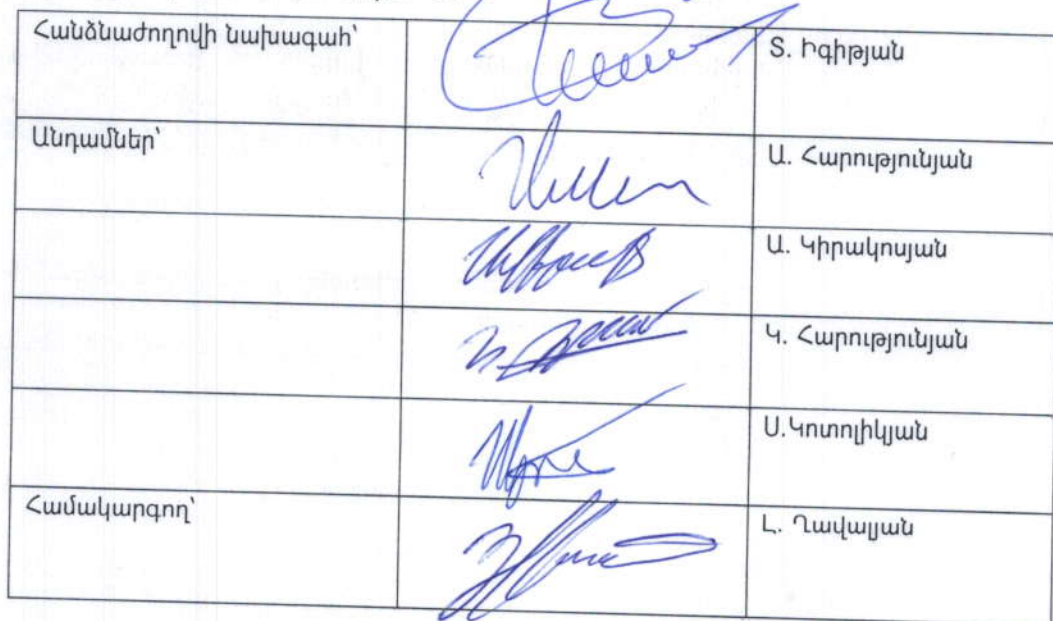 Հանձնաժողովի նախագահ՝ Տ. Իգիթյան
Անդամներ՝ Ա. Հարությունյան
Ա. Կիրակոսյան
Կ. Հարությունյան
Ս.Կոտոլիկյան
Համակարգող՝ Լ. Ղավալյան